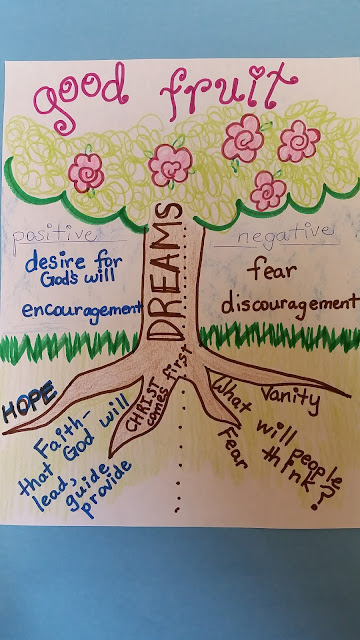 good fruit
positive
negative
desire for
God's will
encouragement
fear
discouragement
DREAMS
HOPE
Faith-
that God will
lead,
guide
provide
CHRIST
comes first
What
will people
think?
Fear
Vanity